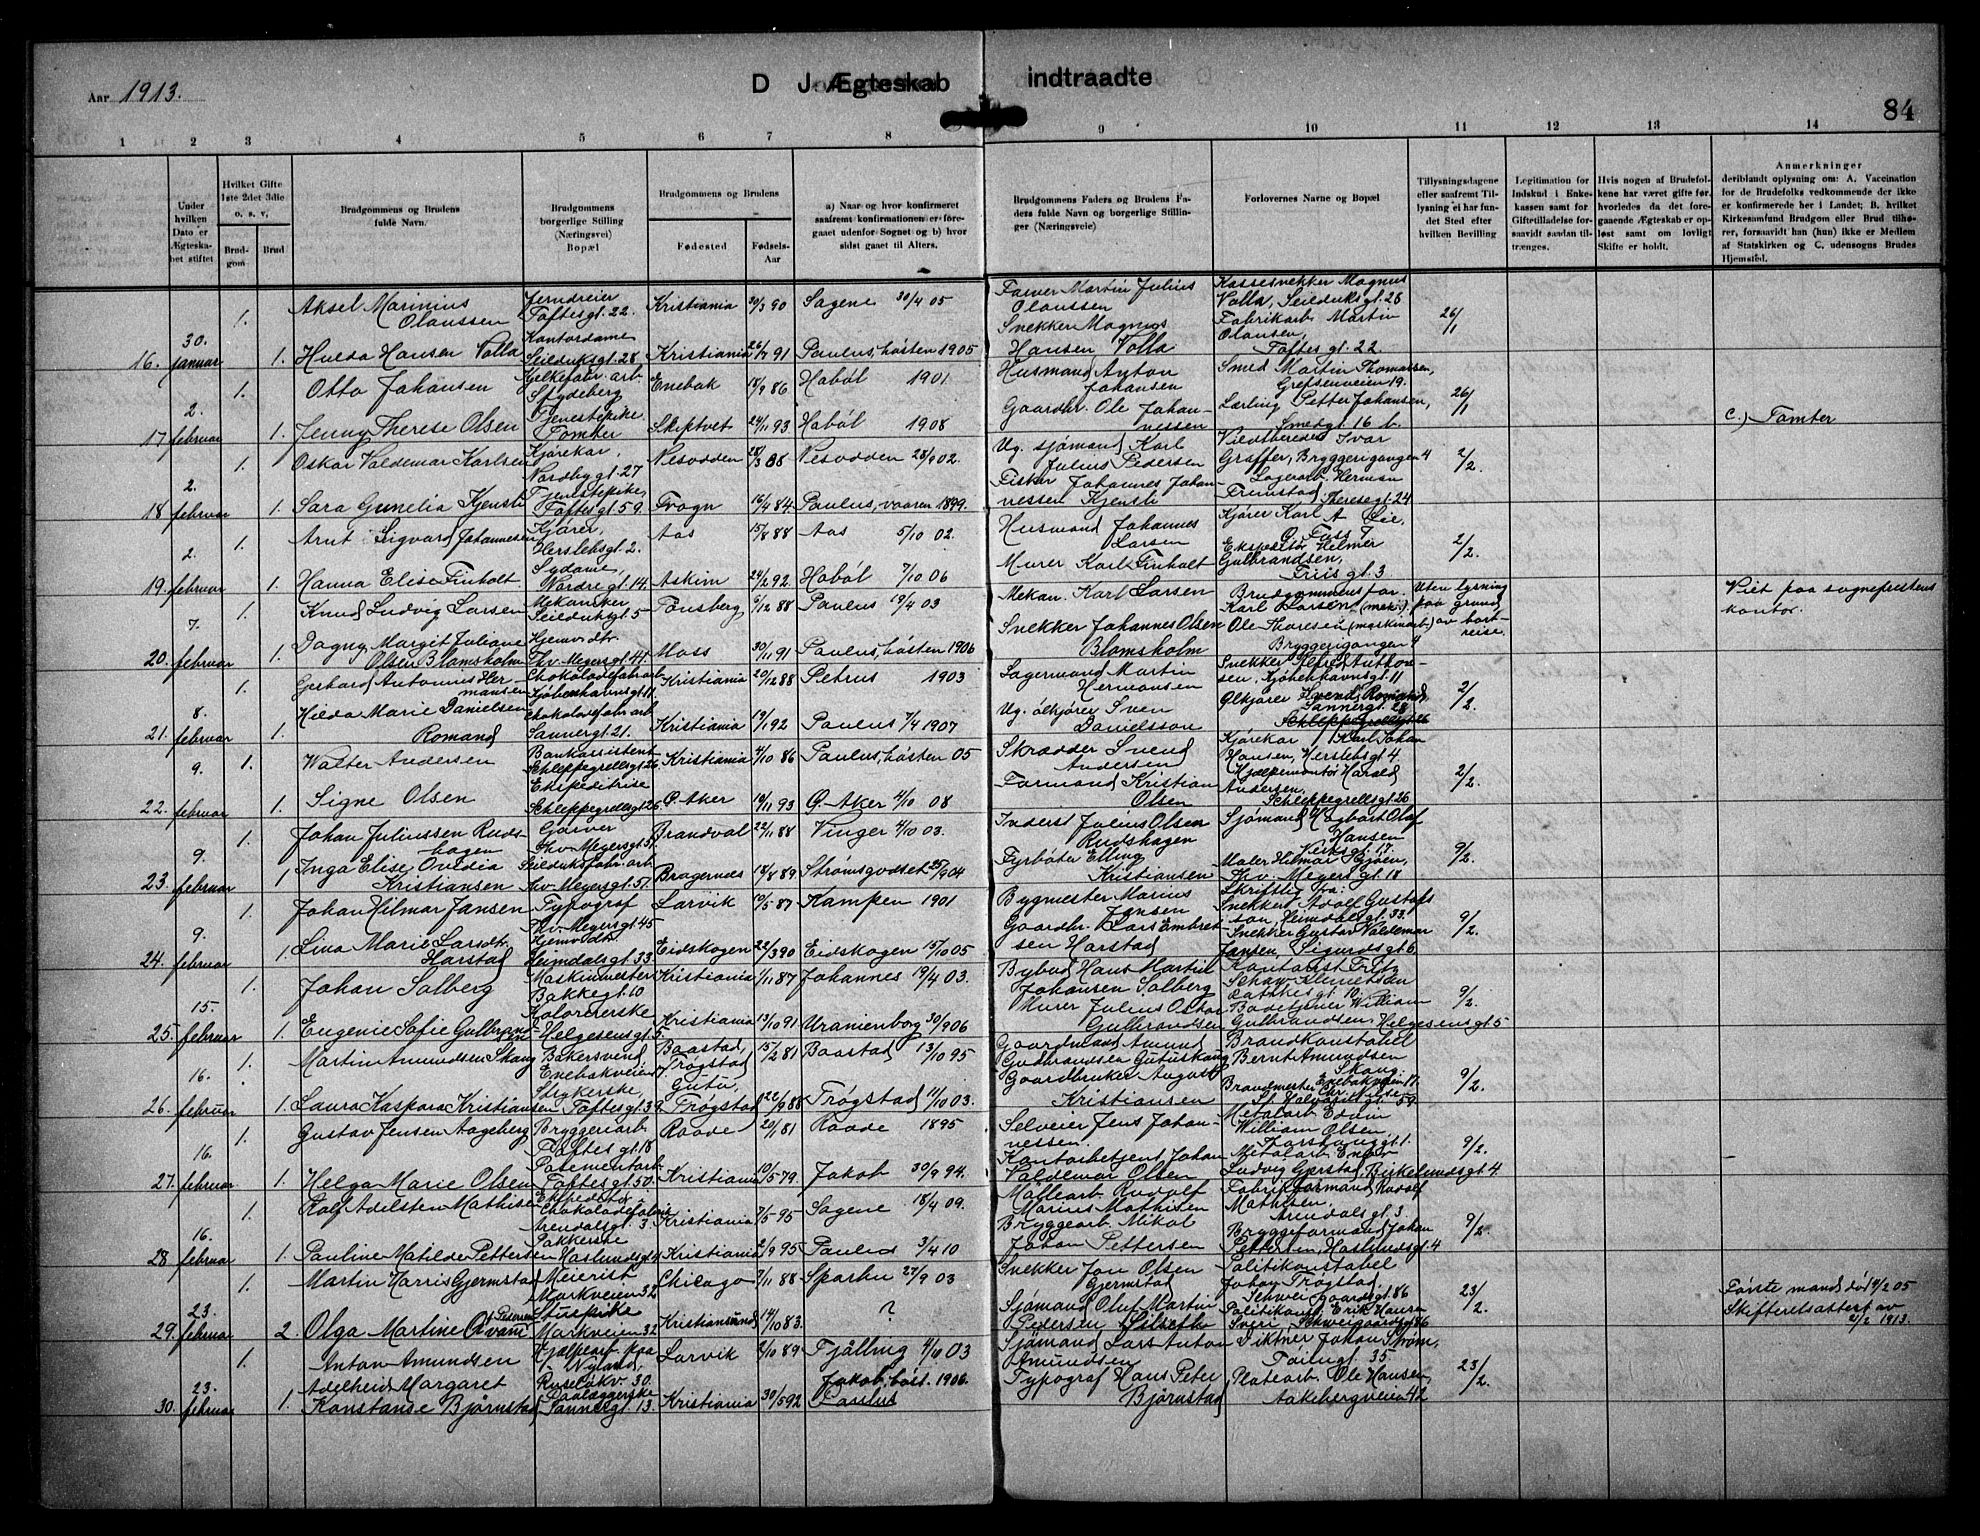 Aar 1913.
D J Ægteskab indtraadte
84
1 2 3 4 5 6 7 8 9 10 11 12 13 14
Under hvilken Dato er Ægteskabet stiftet
Hvilket Gifte 1ste 2det 3die o. s. v.
Brudgom
Brud
Brudgommens og Brudens fulde Navn.
Brudgommens borgerlige Stilling (Næringsvei) Bopæl
Brudgommens og Brudens
Fødested
Fødsels-Aar
a) Naar og hvor konfirmeret saafremt konfirmationen er foregaaet udenfor Sognet og b) hvor sidst gaaet til Alters.
Brudgommens Faders og Brudens Faders fulde Navn og borgerlige Stillinger (Næringsveie)
Forlovernes Navne og Bopæl
Tillysningsdagene eller saafremt Tillysning ei har fundet Sted efter hvilken Bevilling
Legitimation for Indskud i Enkekassen samt for Giftetilladelse forsaavidt saadan tiltrænges.
Hvis nogen af Brudefolkene har været gifte før, hvorledes da det foregaaende Ægteskab er opløst samt om lovligt Skifte er holdt.
Anmerkninger
deriblandt oplysning om: A. Vaccination for de Brudefolks vedkommende der ikke er konfirmerede her i Landet; B. hvilket Kirkesamfund Brudgom eller Brud tilhører, forsaavidt han (hun) ikke er Medlem af Statskirken og C. udensogns Brudes Hjemsted.
16. 30. januar
1. Aksel Marinius Olaussen Jerndreier Toftesgt. 22. Kristiania 30/3 90 Sagene 30/4 05 Farver Martin Julius Olaussen Kassesnekker Magnus Volla, Seilduksgt. 26 26/1
1. Hulda Hansen Volla Kontordame Seilduksgt. 28. Kristiania 26/7 91 Paulus, høsten 1905 Snekker Magnus Hansen Volla Fabrikarb. Martin Olausen, Toftes gt. 22
17. 2. februar
1. Otto Johansen Kjelkefabr. arb Spydeberg Enebak 18/9 86 Hobøl 1901 Husmand Anton Johansen Smed Martin Thomassen, Grefsenveien 19. 26/1
1. Jenny Therese Olsen Tjenestepike Tomter Skiptvet 24/11 93 Hobøl 1908 Gaardbr. Ole Johannessen Lærling Petter Johansen, Smedgt. 16 b. C.) Tomter
18. 2. februar
1. Oskar Valdemar Karlsen Kjørekar, Nordbygt. 27 Nesodden 28/3 88 Nesodden 28/9 02. Ug. sjømand Karl Julius Pedersen Ivar Graffer, Bryggerigangen 4 2/2.
1. Sara Gunelia Kjensli Tjenestepike Toftesgt. 59. Frogn 16/4 84. Paulus, vaaren 1899. Fisker Johannes Johannessen Kjensli Lagerarb. Herman Frimstad, Theresegt. 24
19. 2. februar
1. Arnt Sigvard Johannesen Kjører, Herslebsgt. 2. Aas 15/8 88 Aas 5/10 02. Husmand Johannes Larsen Kjører Karl A Lie, O. Foss 7 2/2.
1. Hanna Elise Finholt Sydame, Nordre gt. 14. Askim 24/2 92. Hobøl 7/10 06 Murer Karl Finholt Ekspeditør Helmer Gulbrandsen, Friis gt. 3
20. 7. februar
1. Knud Ludvig Larsen Mekaniker Seilduksgt. 5 Tønsberg 6/12 88 Paulus 19/4 03 Mekan. Karl Larsen Brudgommens far Karl Larsen (mek.) Uten lysning paa grund av bortreise. Viet paa sogneprestens kontor.
1. Dagny Margit Juliane Olsen Blomsholm Hjemv. dtr. Thv. Meyersgt. 44. Moss 30/11 91 Paulus, høsten 1906 Snekker Johannes Olsen Blomsholm Ole Thoresen (maskinarb.) Bryggerigangen 4
21. 8. februar
1. Gerhard Antonnes Hermansen Chokoladefabr. arb Kjøbenhavnsgt. 11. Kristiania 20/12 88 Petrus 1903 Lagermand Martin Hermansen Snekker Alfred Anthonsen, Kjøbenhavnsgt. 11 2/2.
1. Hilda Marie Danielsen Romand Chokoladefabr. arb Sannergt. 21. Kristiania 19/1 92 Paulus 7/4 1907 Ug. ølkjører Sven Danielsson Ølkjører Svend Romand, Sannergt. 28 Schleppegrellsgt. 26
22. 9. februar
1. Walter Andersen Bankassistent Schleppegrellsgt 26. Kristiania 4/10 86 Paulus, høsten 05 Skrædder Svend Andersen Kjørekar Karl Johan Hansen, Herslebsgt. 4 2/2.
1. Signe Olsen Ekspeditrise Schleppegrellsgt 26. Ø. Aker 19/11 93 Ø. Aker 4/10 08 Formand Kristian Olsen Hjælpemontør Harald Andersen, Schleppegrellsgt. 26
23. 9. februar
1. Johan Juliussen Rudshagen Garver Thv. Meyersgt. 51. Brandval 22/11 88 Vinger 4/10 03. Inderst Julius Olsen Rudshagen Sjømand Hagbart Olaf Hansen Verksgt. 17. 9/2.
1. Inga Elise Ovidia Kristiansen Seilduksfabr. arb Thv. Meyersgt. 51. Bragernes 18/8 89. Strømsgodset 25/9 04 Fyrbøter Elling Kristiansen Maler Hilmar Gjøen, Thv. Meyers gt. 18
24. 9. februar
1. Johan Hilmar Jansen Typograf Thv. Meyersgt. 45 Larvik 19/5 87 Kampen 1901 Bygmester Marius Jansen Skriftlig fra: Snekker Adolf Gustafsson, Heimdalsgt. 33. 9/2.
1. Lina Marie Larsdtr. Harstad Hjemv. dtr. Heimdalsgt. 33. Eidskogen 22/3 90 Eidskogen 15/10 05 Gaardbr. Lars Embretsen Harstad Snekker Gustav Valdemar Jansen, Sigurdsgt. 6.
25. 15. februar
1. Johan Solberg Maskinmester Bakkegt. 10 Kristiania 1/11 87 Johannes 19/4 03. Bybud Hans Martin Johansen Solberg Kontorist Fritz Schau Klemetsen 10. 9/2.
1. Eugenie Sofie Gulbrandsen Kolorerske Helgesensgt. 5 Kristiania 13/10 91 Uranienborg 30/9 06 Murer Julius Oskar Gulbrandsen Badetjener William Gulbrandsen, Helgesensgt 5
26. 16. februar
1. Martin Amundsen Skang Bakersvend Enebakveien 7. Baastad, Trøgstad 15/2 81 Baastad 13/10 95 Gaardmand Amund Gudbrandsen Gutuskang Brandkonstabel Bernt Amundsen Skang: Enebakveien 17. 9/2.
1. Laura Kaspara Kristiansen Strykerske, Toftesgt. 39. Gutu, Trøgstad 22/9 88 Trøgstad 11/10 03. Gaardbruker August Kristiansen Brandmester Chr. Nilsen St. Halvards gt. 59.
27. 16. februar
1. Gustav Jensen Aageberg Bryggeriarb. Toftes gt. 18 Raade 20/1 81 Raade 1895 Selveier Jens Johannessen. Metalarb. Edvin William Olsen, gt. 1. 9/2.
1. Helga Marie Olsen Posementarb. Toftes gt. 50. Kristiania 10/5 79. Jakob 30/9 94. Kontorbetjent Johan Valdemar Olsen Metalarb. Einar Ludvig Gjerstad, Birkelundsgt. 4
28. 16. februar
1. Rolf Adelsten Mathisen Ekspeditør i Chokoladefabrik Arendalsgt. 3 Kristiania 7/5 95 Sagene 18/4 09. Møllearb. Rudolf Marius Mathisen Fabrikformand Rudolf Mathisen, Arendalsgt. 3 9/2.
1. Pauline Matilde Pettersen Pakkerske Haslundsgt 4. Kristiania 2/9 95 Paulus 3/4 10 Bryggearb. Mikal Johan Pettersen Bryggeformand Johan Pettersen, Haslundsgt. 4
29. 23. februar
1. Martin Harris Gjermstad Meierist Markveien 32 Chicago 7/11 88 Sparbu 27/9 03 Snekker Jon Olsen Gjermstad Politikonstabel Johan Trøgstad, Schweigaardsgt. 86 23/2. Første mand død 19/2 05 Skifteretsattest av 21/2 1913.
2. Olga Martine Pedersen Kvam Stuepike Markveien 32 Kristiansund 14/10 83. ? Sjømand Oluf Martin Pedersen Silsetho Politikonst. Erik Hansen Sveri Schweigaardsgt 86
30. 23. februar
1. Anton Amundsen Hjælpearb. paa Nyland, Ruseløkv. 30. Larvik 2/10 89 Tjølling 4/10 03 Sjømand Lars Anton Amundsen Diktner Johan Strøm, gt. 35. 23/2.
1. Adelheid Margaret Konstanse Bjørnstad Paalæggerske Sannergt. 13. Kristiania 30/5 92 Jakob, høst. 1906. Paulus Typograf Hans Peter Bjørnstad Platearb. Ole Hansen, Aakebergveien 42